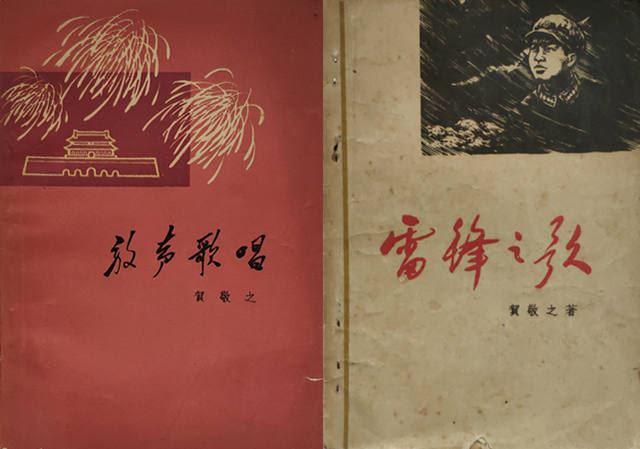 放声歌唱
賀敬之
雷锋之歌
賀敬之著